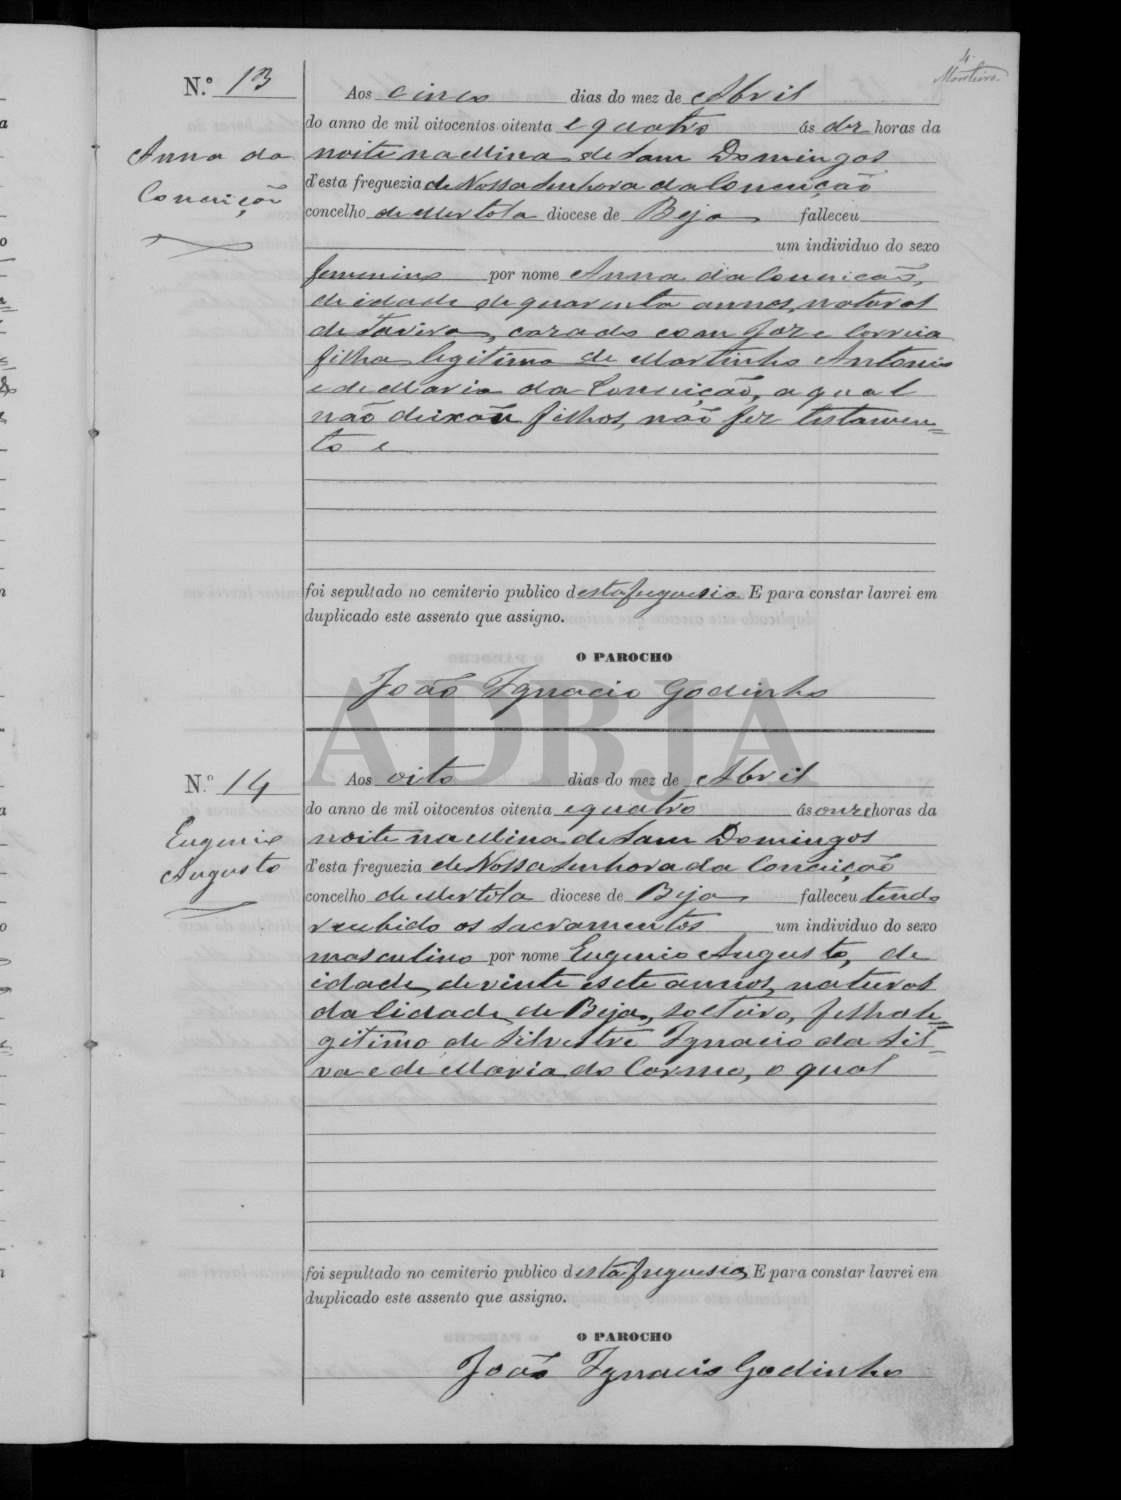 4
Monteiro
N.º 13
Anna da
Conceição
Aos cinco dias do mez de Abril
do anno de mil oitocentos oitenta e quatro ás dez horas da
noite na Mina de Sam Domingos
d'esta freguezia de Nossa Senhora da Conceição
concelho de Mertola diocese de Beja falleceu
um individuo do sexo
femenino por nome Anna da Conceicão,
de idade de quarenta annos, natural
de Tavira, cazada com Joze Correia
filha legitima de Martinho Antonio
e de Maria da Conceição, a qual
não deixou filhos, não fez testamen=
to e
foi sepultado no cemiterio publico desta freguesia E para constar lavrei em
duplicado este assento que assigno.
O PAROCHO
João Ignacio Godinho
ADBJA
N.º 14
Eugenio
Augusto
Aos oito dias do mez de Abril
do anno de mil oitocentos oitenta e quatro ás onze horas da
noite na Mina de Sam Domingos
d'esta freguezia de Nossa Senhora da Conceição
concelho de Mertola diocese de Beja falleceu tendo
recebido os sacramentos um individuo do sexo
masculino por nome Eugenio Augusto, de
idade de vinte e sete annos, natural
da Cidade de Beja, solteiro, filho le=
gitimo de Silvestre Ignacio da Sil=
va e de Maria do Carmo, o qual
foi sepultado no cemiterio publico desta freguesia E para constar lavrei em
duplicado este assento que assigno.
O PAROCHO
João Ignacio Godinho